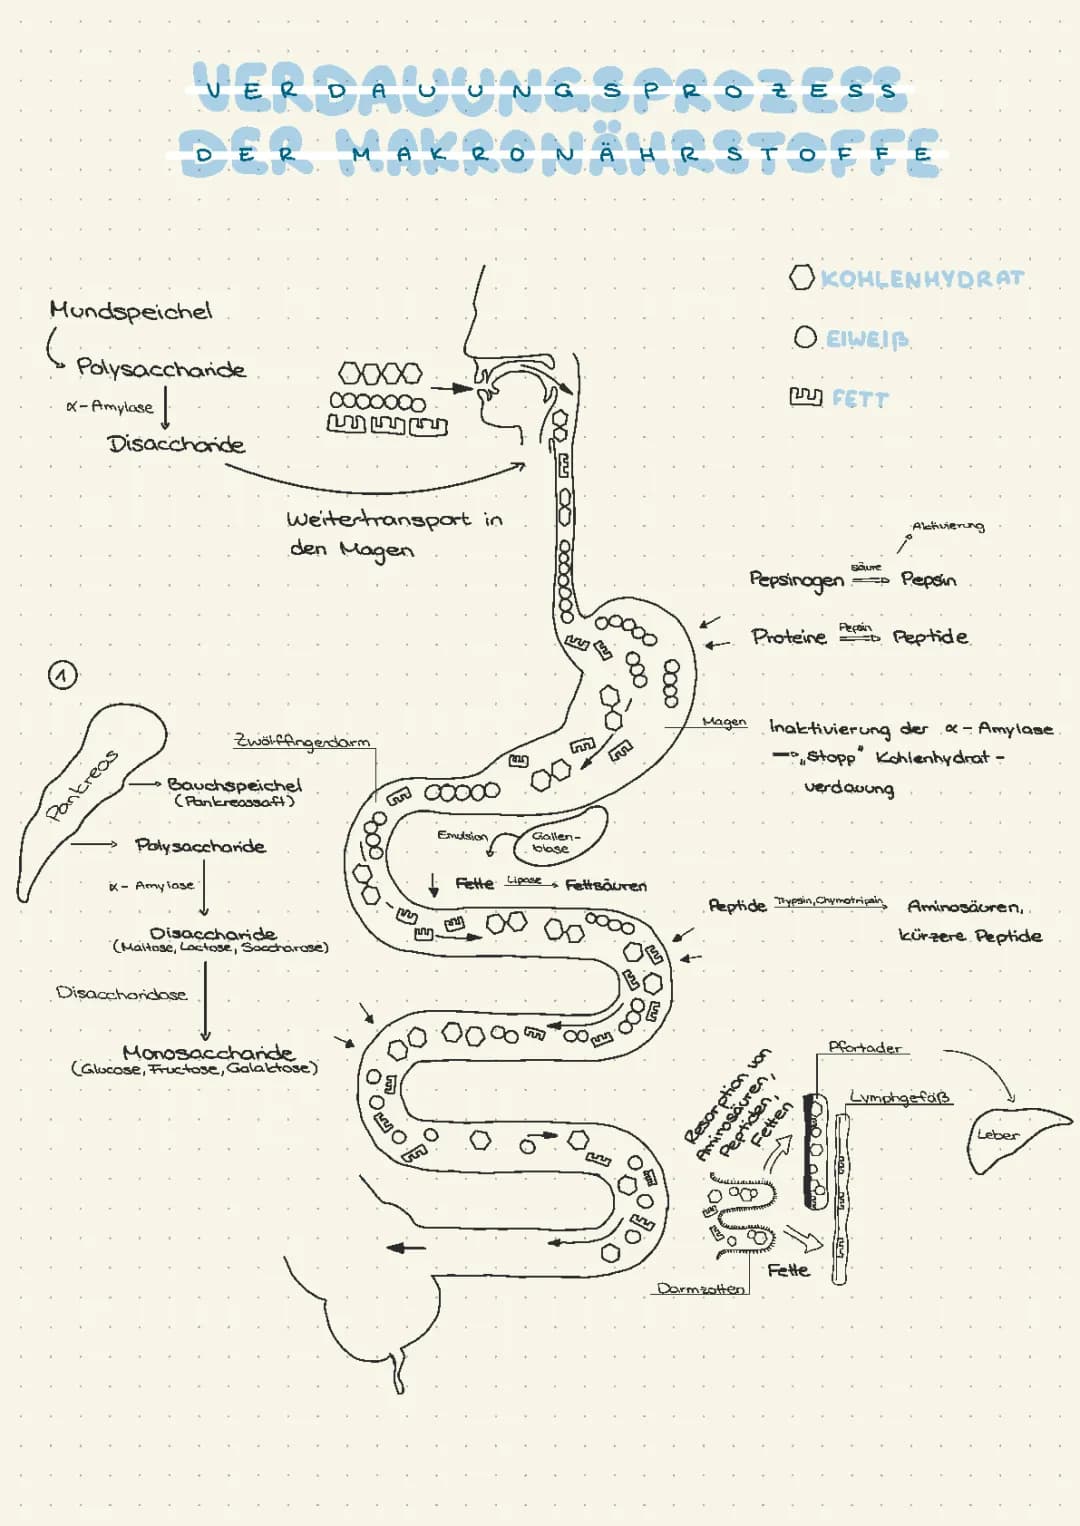 VERDAUUNGSPROZESS
DER MAKRONÄHRSTOFFE
KOHLENHYDRAT
EIWEIß
FETT
Mundspeichel
Polysaccharide
α-Amylase
Disaccharide
Weitertransport in
den Magen
Aktivierung
Pepsinogen Säure Pepsin
Proteine Pepsin Peptide
Magen
Inaktivierung der α-Amylase
"Stopp" Kohlenhydrat-
verdauung
1
Pankreas
Zwölffingerdarm
Bauchspeichel
(Pankreassaft)
Polysaccharide
α-Amylase
Disaccharide
(Maltose, Lactose, Saccharose)
Disaccharidase
Monosaccharide
(Glucose, Fructose, Galaktose)
Emulsion
Gallen-
blase
Fette Lipase Fettsäuren
Peptide Trypsin, Chymotripsin Aminosäuren,
kürzere Peptide
Resorption von
Aminosäuren,
Peptiden,
Fetten
Pfortader
Lymphgefäß
Leber
Fette
Darmzotten